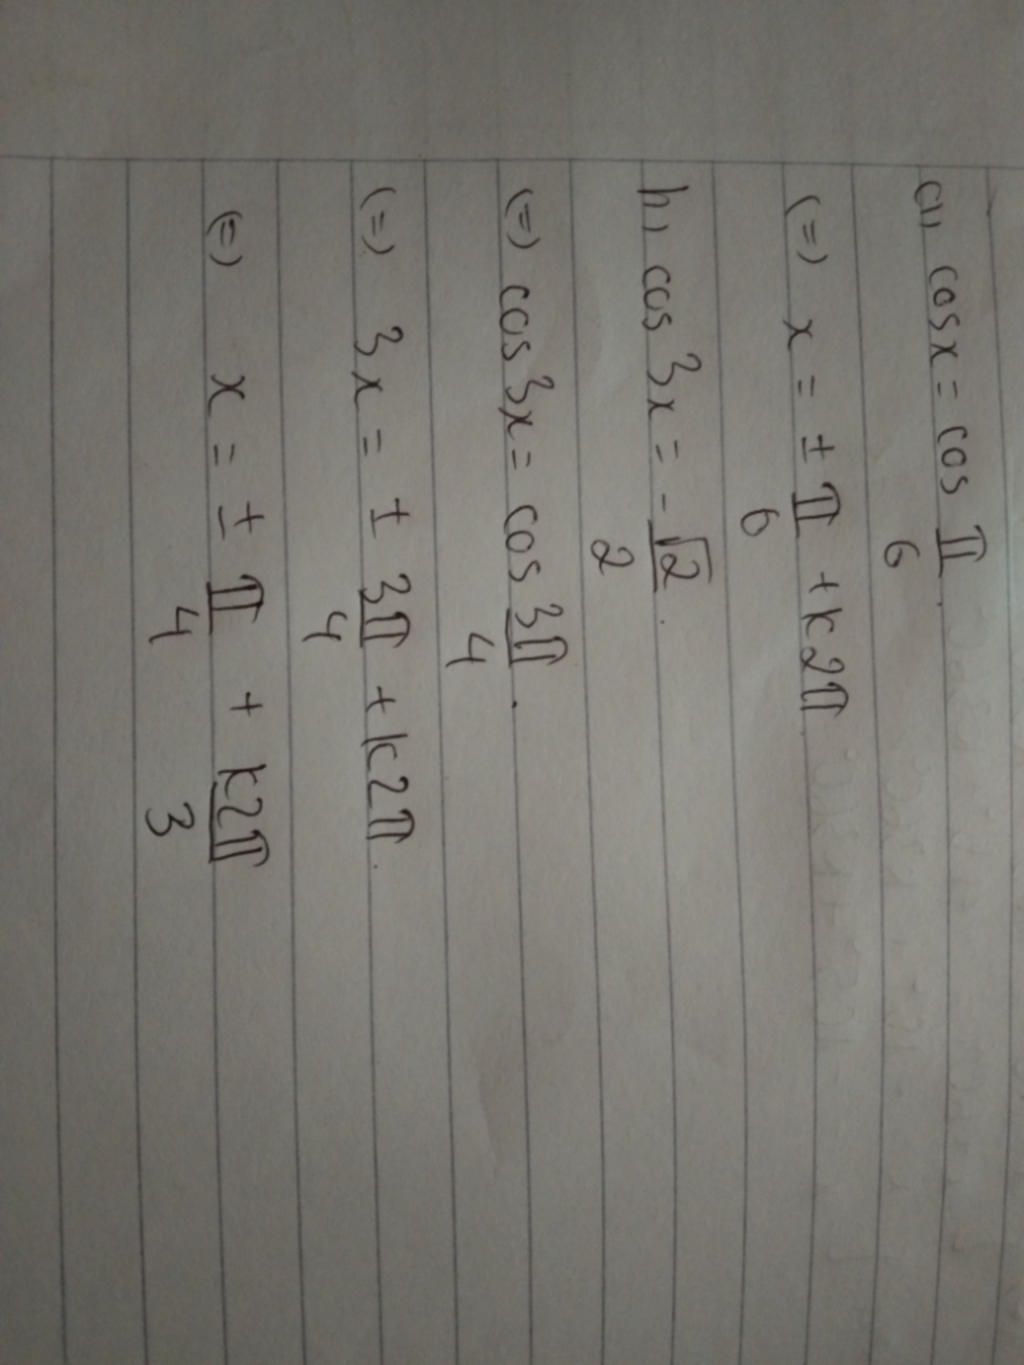 a, cosx = cos π/6.
(=) x = ± π/6 + k2π
h, cos 3x = -√2/2.
(=) cos 3x = cos 3π/4.
(=) 3x = ± 3π/4 + k2π.
(=) x = ± π/4 + k2π/3